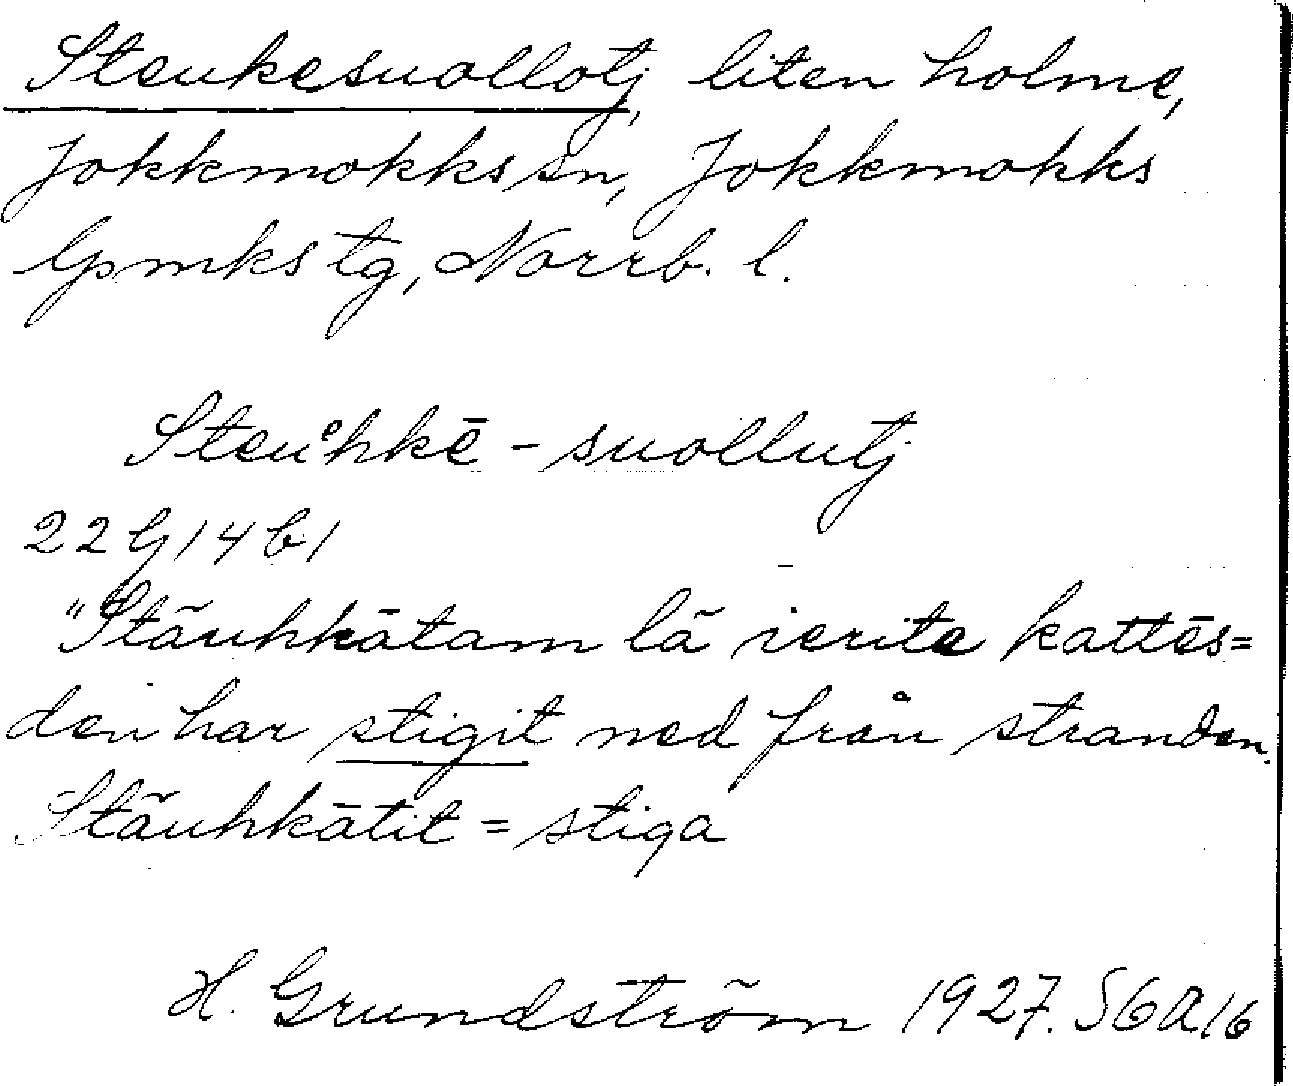 Steukesuollotj, liten holme,
Jokkmokks sn, Jokkmokks
lpmks tg, Norrb. l.
Steuᵉhkē - suollutj
22 G 14 b 1
"Stāuhkātam lā rierite kattēs=
den har stigit ned från stranden.
Stāuhkātit = stiga
H. Grundström 1927. S6a16